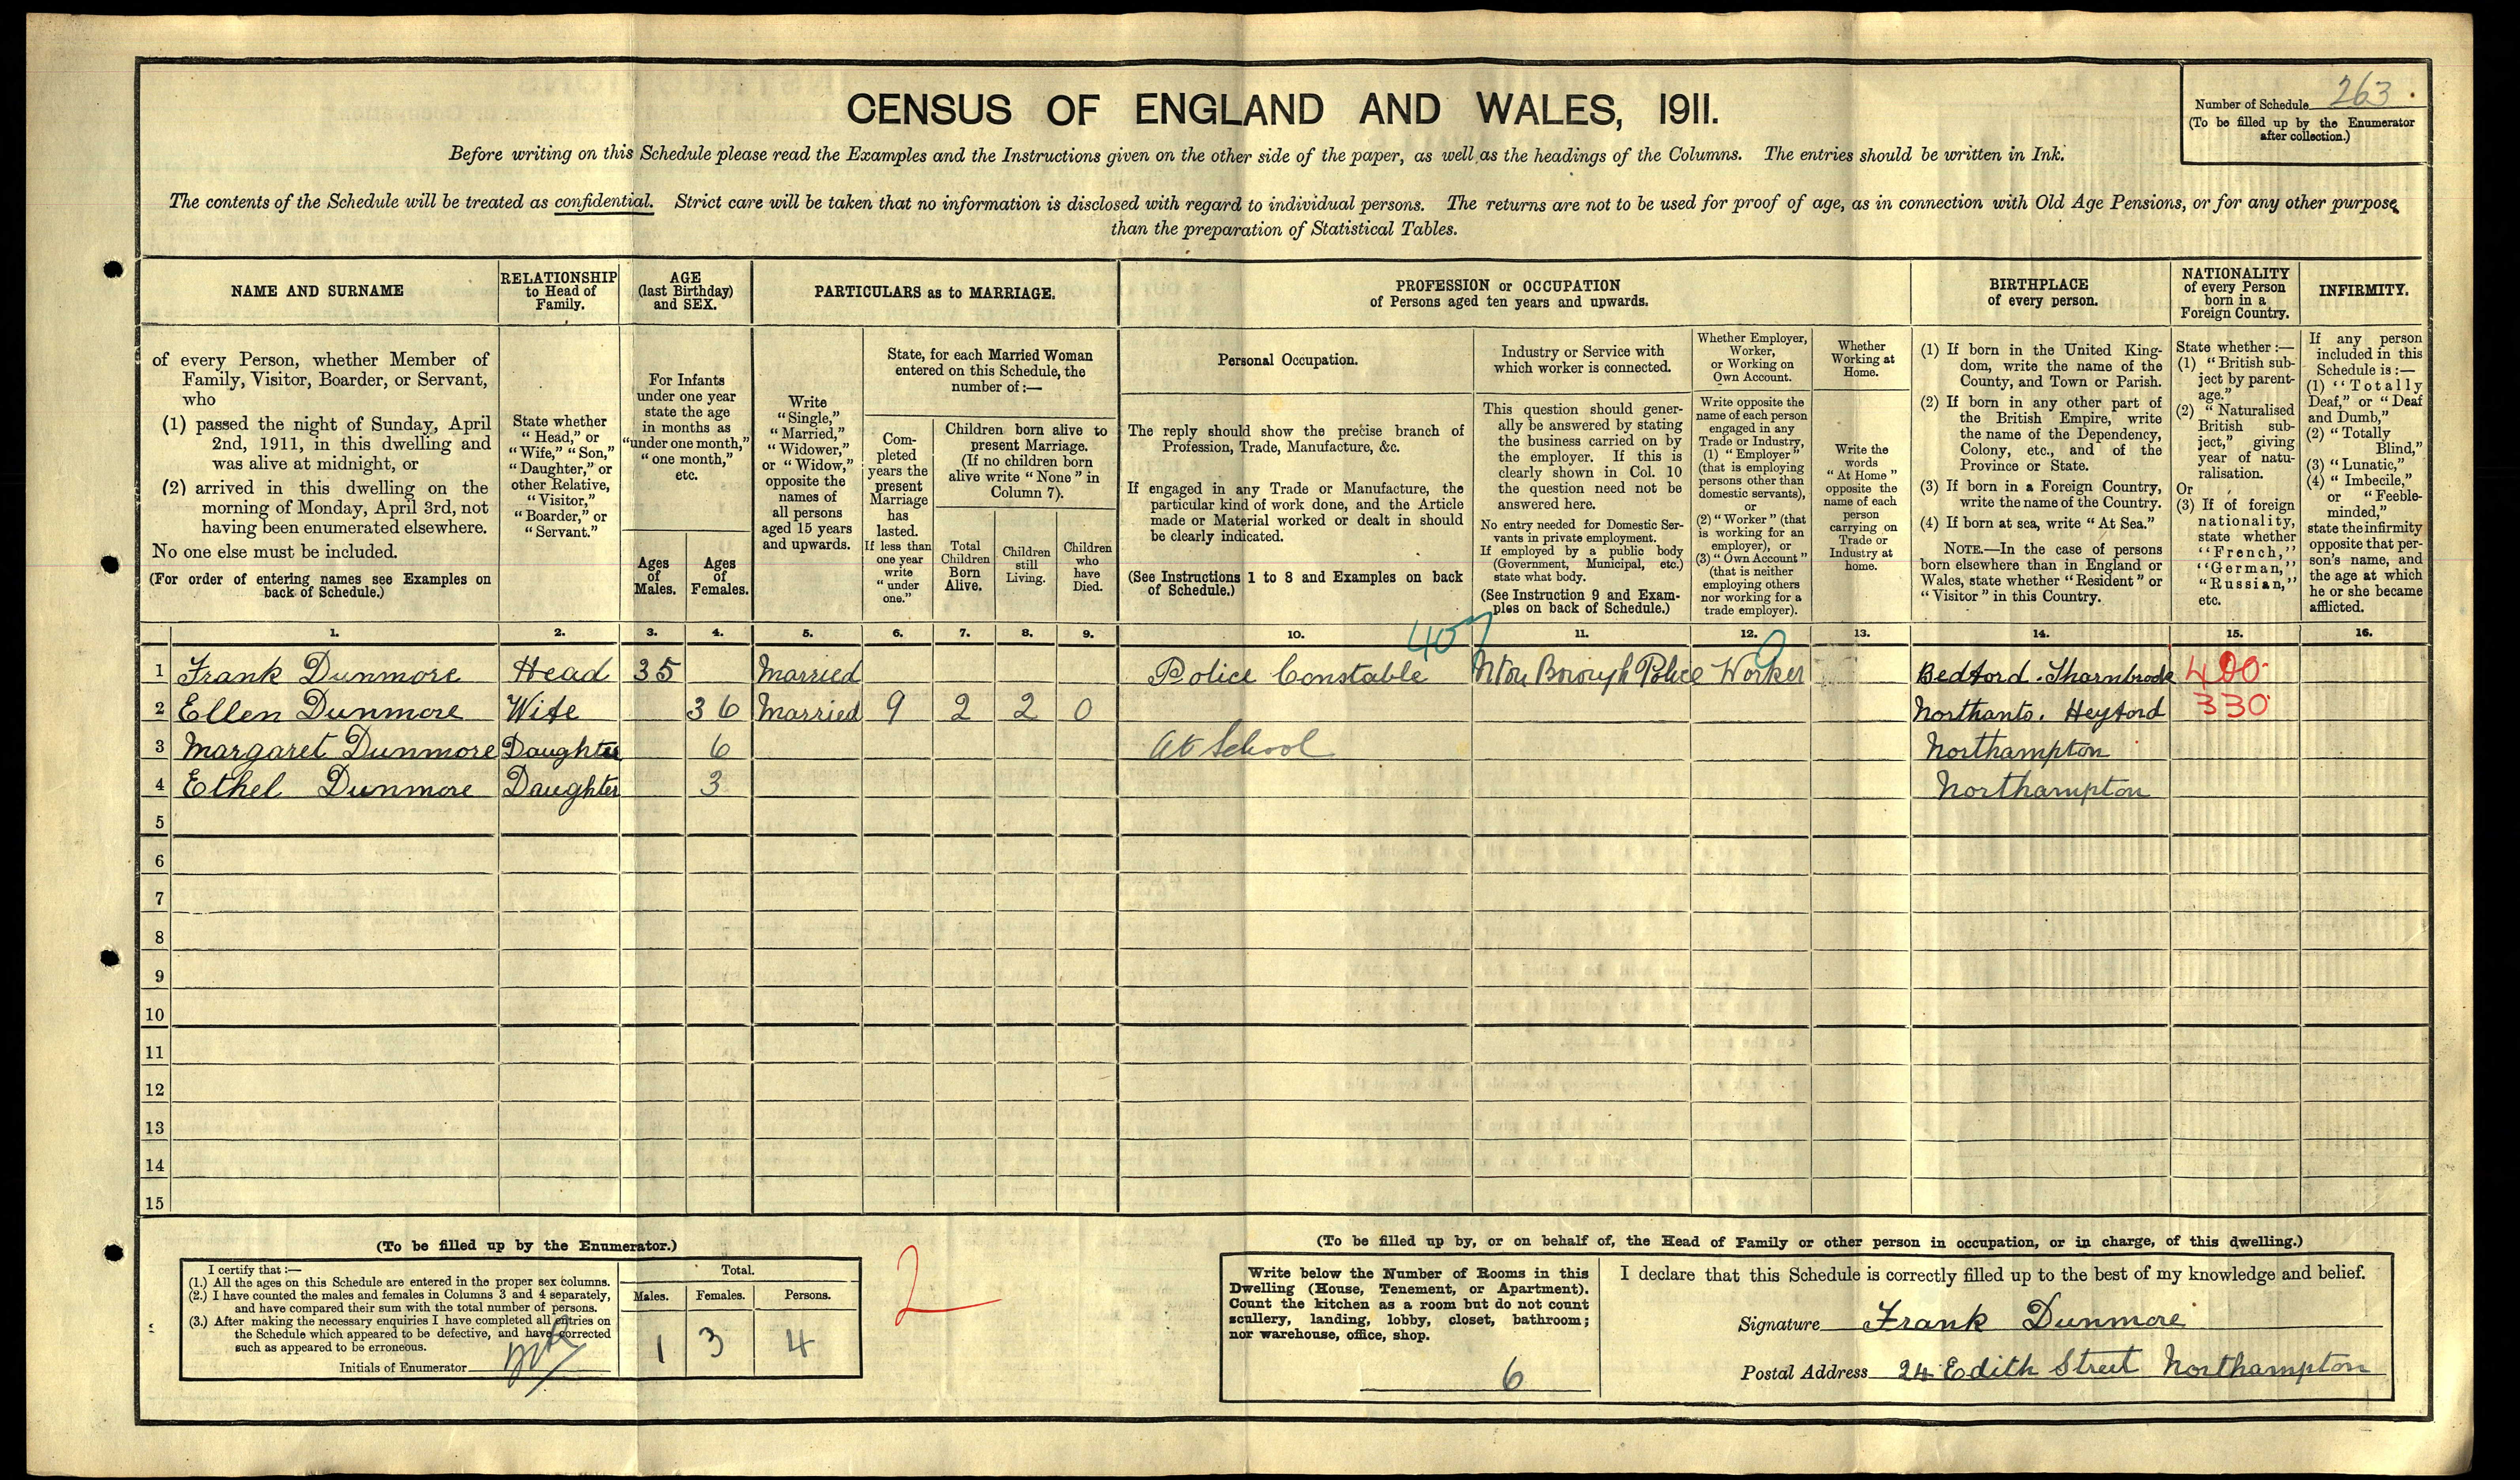 CENSUS OF ENGLAND AND WALES, 1911.
Number of Schedule 263.
(To be filled up by the Enumerator
after collection.)
Before writing on this Schedule please read the Examples and the Instructions given on the other side of the paper, as well as the headings of the Columns. The entries should be written in Ink.
The contents of the Schedule will be treated as confidential. Strict care will be taken that no information is disclosed with regard to individual persons. The returns are not to be used for proof of age, as in connection with Old Age Pensions, or for any other purpose
than the preparation of Statistical Tables.
NAME AND SURNAME
of every Person, whether Member of
Family, Visitor, Boarder, or Servant,
who
(1) passed the night of Sunday, April
2nd, 1911, in this dwelling and
was alive at midnight, or
(2) arrived in this dwelling on the
morning of Monday, April 3rd, not
having been enumerated elsewhere.
No one else must be included.
(For order of entering names see Examples on
back of Schedule.)
RELATIONSHIP
to Head of
Family.
State whether
"Head," or
"Wife," "Son,"
"Daughter," or
other Relative,
"Visitor,"
"Boarder," or
"Servant."
AGE
(last Birthday)
and SEX.
For Infants
under one year
state the age
in months as
"under one month,"
"one month,"
etc.
Ages
of
Males.
Ages
of
Females.
PARTICULARS as to MARRIAGE.
Write
"Single,"
"Married,"
"Widower,"
or "Widow,"
opposite the
names of
all persons
aged 15 years
and upwards.
State, for each Married Woman
entered on this Schedule, the
number of:—
Com-
pleted
years the
present
Marriage
has
lasted.
If less than
one year
write
"under
one."
Children born alive to
present Marriage.
(If no children born
alive write "None" in
Column 7).
Total
Children
Born
Alive.
Children
still
Living.
Children
who
have
Died.
PROFESSION or OCCUPATION
of Persons aged ten years and upwards.
Personal Occupation.
The reply should show the precise branch of
Profession, Trade, Manufacture, &c.
If engaged in any Trade or Manufacture, the
particular kind of work done, and the Article
made or Material worked or dealt in should
be clearly indicated.
(See Instructions 1 to 8 and Examples on back
of Schedule.)
Industry or Service with
which worker is connected.
This question should gener-
ally be answered by stating
the business carried on by
the employer. If this is
clearly shown in Col. 10
the question need not be
answered here.
No entry needed for Domestic Ser-
vants in private employment.
If employed by a public body
(Government, Municipal, etc.)
state what body.
(See Instruction 9 and Exam-
ples on back of Schedule.)
Whether Employer,
Worker,
or Working on
Own Account.
Write opposite the
name of each person
engaged in any
Trade or Industry,
(1) "Employer"
(that is employing
persons other than
domestic servants),
or
(2) "Worker" (that
is working for an
employer), or
(3) "Own Account"
(that is neither
employing others
nor working for a
trade employer).
Whether
Working at
Home.
Write the
words
"At Home"
opposite the
name of each
person
carrying on
Trade or
Industry at
home.
BIRTHPLACE
of every person.
(1) If born in the United King-
dom, write the name of the
County, and Town or Parish.
(2) If born in any other part of
the British Empire, write
the name of the Dependency,
Colony, etc., and of the
Province or State.
(3) If born in a Foreign Country,
write the name of the Country.
(4) If born at sea, write "At Sea."
NOTE.—In the case of persons
born elsewhere than in England or
Wales, state whether "Resident" or
"Visitor" in this Country.
NATIONALITY
of every Person
born in a
Foreign Country.
State whether:—
(1) "British sub-
ject by parent-
age."
(2) "Naturalised
British sub-
ject," giving
year of natu-
ralisation.
Or
(3) If of foreign
nationality,
state whether
"French,"
"German,"
"Russian,"
etc.
INFIRMITY.
If any person
included in this
Schedule is:—
(1) "Totally
Deaf," or "Deaf
and Dumb,"
(2) "Totally
Blind,"
(3) "Lunatic,"
(4) "Imbecile,"
or "Feeble-
minded,"
state the infirmity
opposite that per-
son's name, and
the age at which
he or she became
afflicted.
1. 2. 3. 4. 5. 6. 7. 8. 9. 10. 11. 12. 13. 14. 15. 16.
407
1 Frank Dunmore Head 35 Married Police Constable Nton Borough Police Worker Bedford. Sharnbrook 400
2 Ellen Dunmore Wife 36 Married 9 2 2 0 Northants. Heyford 330
3 Margaret Dunmore Daughter 6 At School Northampton
4 Ethel Dunmore Daughter 3 Northampton
5
6
7
8
9
10
11
12
13
14
15
(To be filled up by the Enumerator.)
I certify that:—
(1.) All the ages on this Schedule are entered in the proper sex columns.
(2.) I have counted the males and females in Columns 3 and 4 separately,
and have compared their sum with the total number of persons.
(3.) After making the necessary enquiries I have completed all entries on
the Schedule which appeared to be defective, and have corrected
such as appeared to be erroneous.
Initials of Enumerator
Total.
Males. Females. Persons.
1 3 4
2
(To be filled up by, or on behalf of, the Head of Family or other person in occupation, or in charge, of this dwelling.)
Write below the Number of Rooms in this
Dwelling (House, Tenement, or Apartment).
Count the kitchen as a room but do not count
scullery, landing, lobby, closet, bathroom;
nor warehouse, office, shop.
6
I declare that this Schedule is correctly filled up to the best of my knowledge and belief.
Signature Frank Dunmore
Postal Address 24 Edith Street Northampton